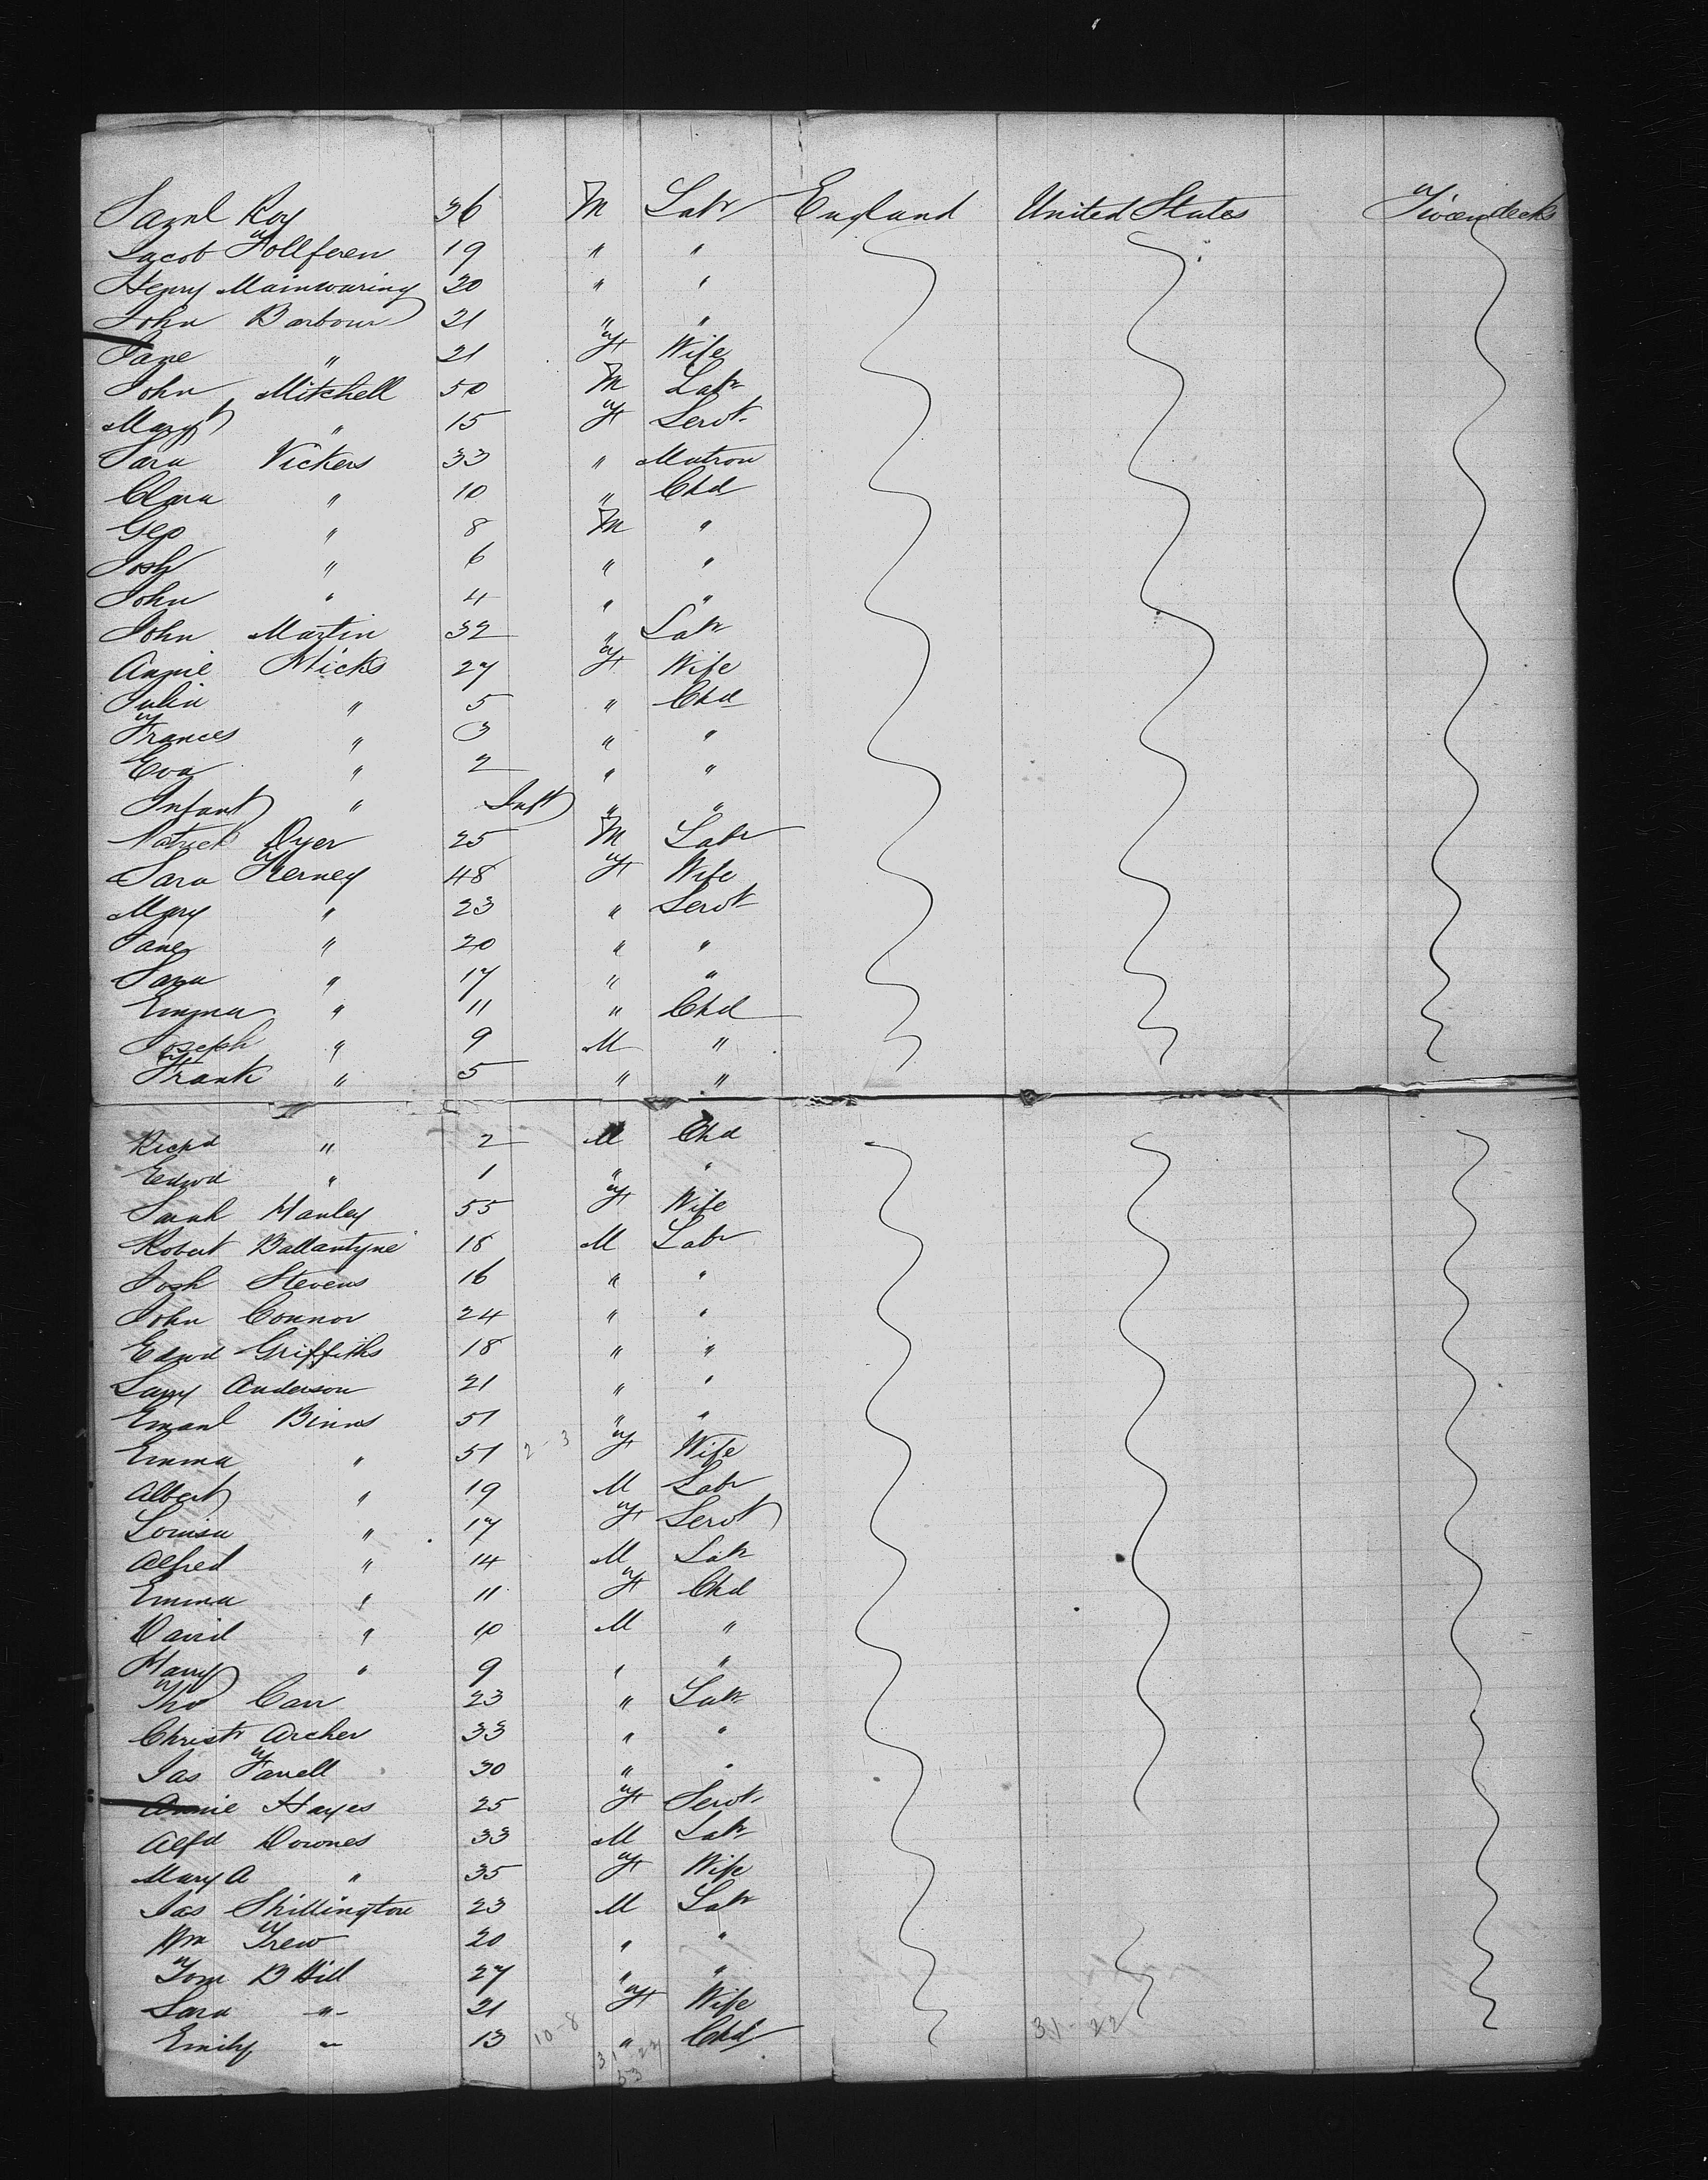 Saml Roy 36 M Labr England United States Tween decks
Jacob Follferen 19 " "
Henry Mainwaring 20 " "
John Barbour 21 " "
Jane " 21 F Wife
John Mitchell 50 M Labr
Margt " 15 F Servt
Sara Vickers 33 " Matron
Clara " 10 " Chd
Geo " 8 M "
Josh " 6 " "
John " 4 " "
John Martin 32 " Labr
Annie Hicks 27 F Wife
Julia " 5 " Chd
Frances " 3 " "
Eva " 2 " "
Infant " Inft " "
Patrick Dyer 25 M Labr
Sara Kerney 48 F Wife
Mary " 23 " Servt
Jane " 20 " "
Sara " 17 " "
Emma " 11 " Chd
Joseph " 9 M "
Frank " 5 " "
Richd " 2 M Chd
Edwd " 1 " "
Sarah Hanley 55 F Wife
Robert Ballantyne 18 M Labr
Josh Stevens 16 " "
John Connor 24 " "
Edwd Griffiths 18 " "
Larry Anderson 21 " "
Emanl Binns 51 " "
Emma " 51 2-3 F Wife
Albert " 19 M Labr
Louisa " 17 F Servt
Alfred " 14 M Labr
Emma " 11 F Chd
David " 10 M "
Harry " 9 " "
Tho Carr 23 " Labr
Christr Archer 33 " "
Jas Farrell 30 " "
Annie Hayes 25 F Servt
Alfd Downes 33 M Labr
Mary A " 35 F Wife
Jas Skillington 23 M Labr
Wm Trew 20 " "
Tom B Hill 27 " "
Sara " 21 F Wife
Emily " 13 10-8 " Chd 31-22
31-22
53